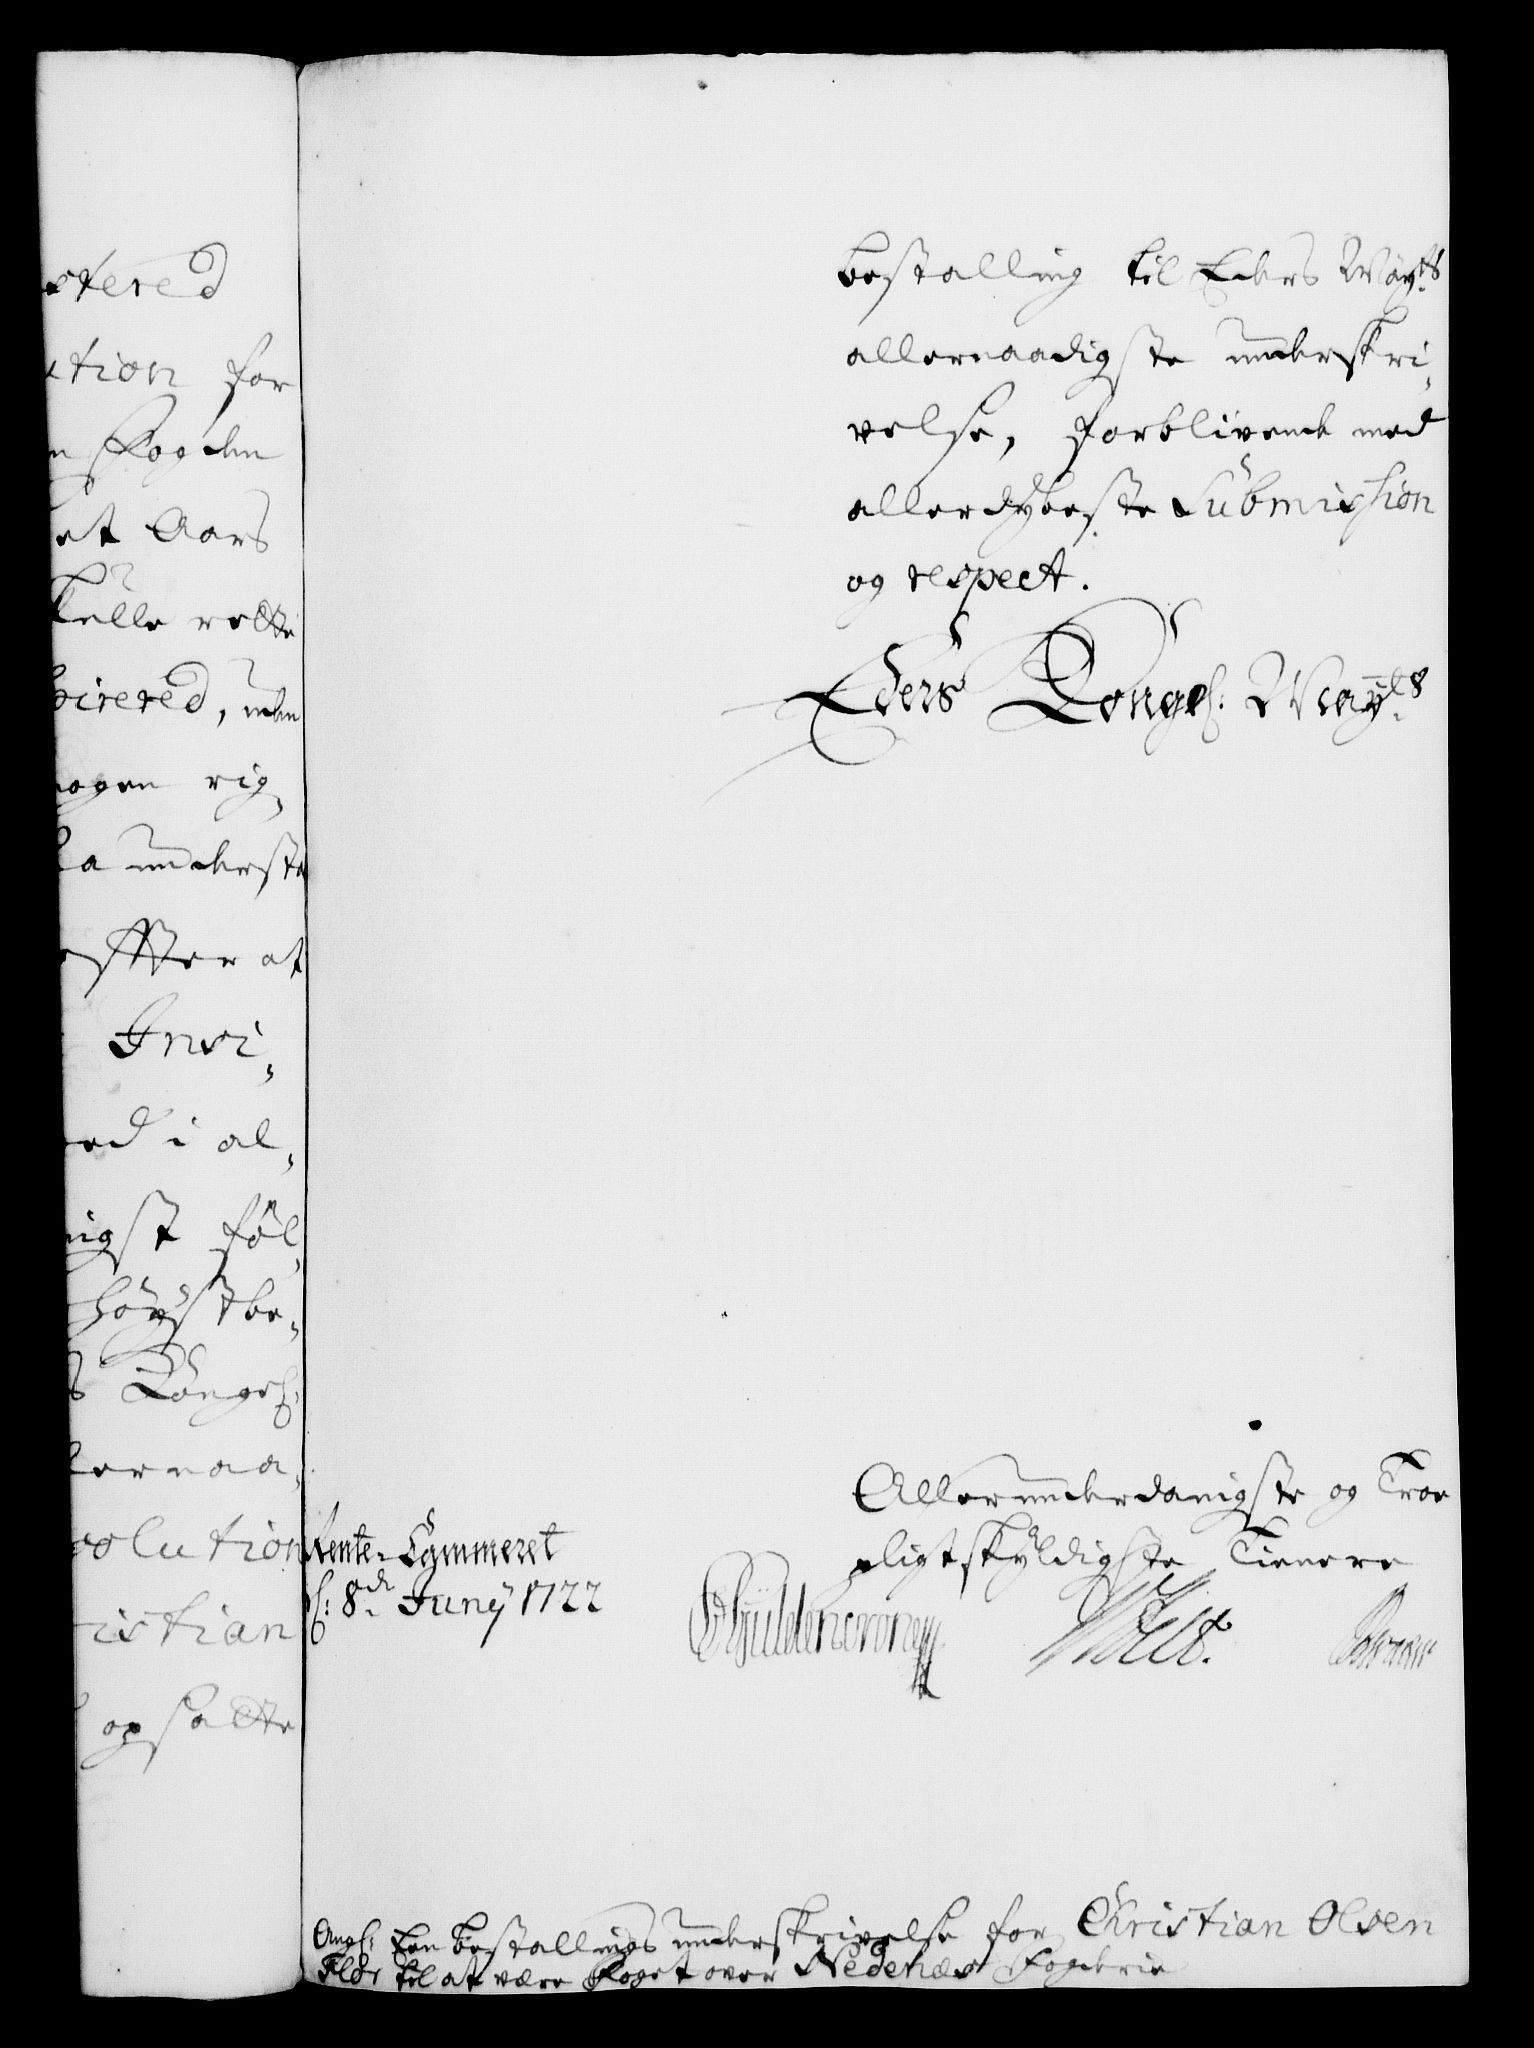 stered
ution for
n Fogden
et Aars
kulle rette
pirered, uden
nogen rig„
da understa
effter at
Insi„
ed i al„
nigst føl„
høyst be„
s Kongel:
lernaa„
solution
ristian
opsatte
bestalling til Eders May:ts
allernaadigste underskri„
velse, forblivende med
allerdybeste Submission
og respect.
Eders Kongel: May:ts
Allerunderdanigste og Troe
pligtskyldigste Tienere
Rente-Cammeret
8de Junij 1722
Gyldencrone
Ang: Een bestallings underskrivelse for Christian Olsen
til at være Foget over Nedenæs Fogderie